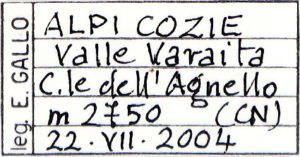 leg. E. GALLO
ALPI COZIE
Valle Varaita
C.le dell'Agnello
m 2750 (CN)
22·VII·2004